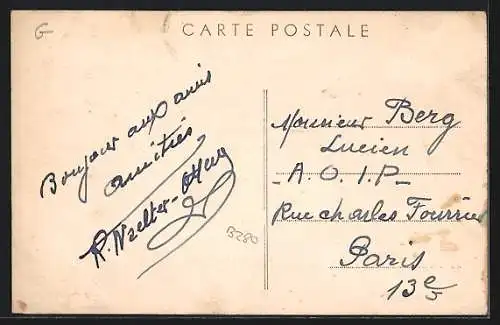 G
CARTE POSTALE
Bonjour aux amis
amitiés
B280
Monsieur Berg
Lucien
- A. O. I. P -
Rue charles Fourrier
Paris
13e